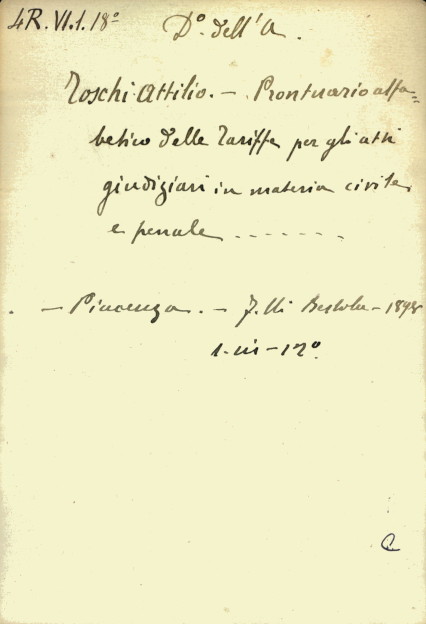 4R.VI.1.18º Dº. dell'A.
Toschi Attilio. – Prontuario alfa=
betico delle Tariffe per gli atti
giudiziari in materia civile
e penale .......
– Piacenza. – F.lli Bertola – 1898
1-in-12º.